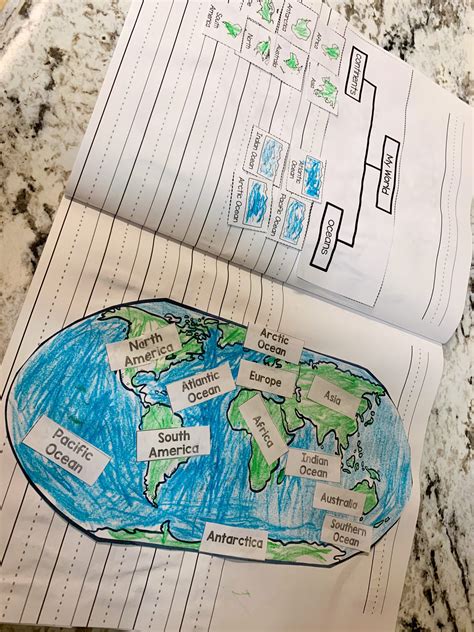 My World
continents
oceans
Asia
Africa
Australia
Antarctica
North
South
America
Atlantic
Ocean
Indian Ocean
Pacific Ocean
Arctic Ocean
North
America
Arctic
Ocean
Atlantic
Ocean
Europe
Asia
Africa
Pacific
Ocean
South
America
Indian
Ocean
Australia
Southern
Ocean
Antarctica